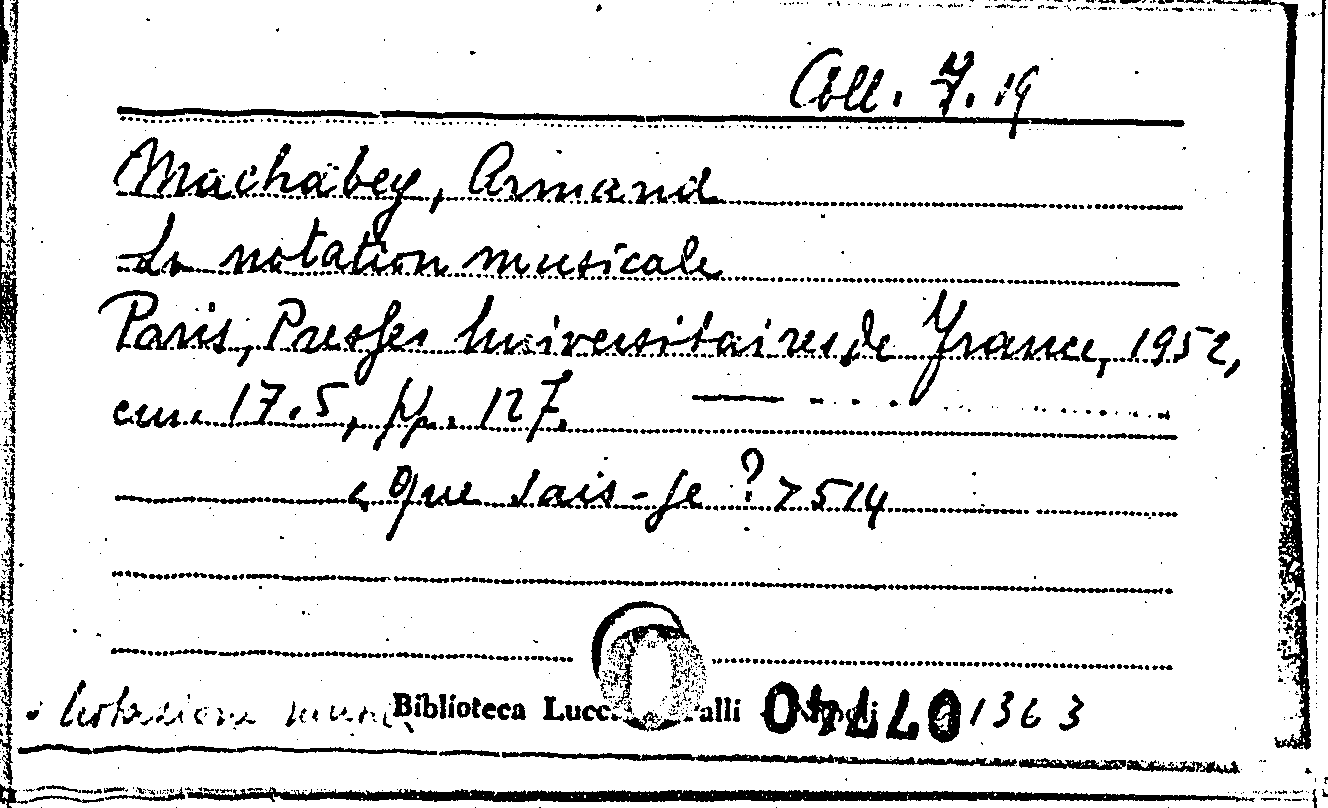 Coll. 7. 19
Machabey, Armand
La notation musicale
Paris, Presses Universitaires de France, 1952,
cm. 17.5, pp. 127.
« Que sais-je ? » 514
Notazione Biblioteca 1363